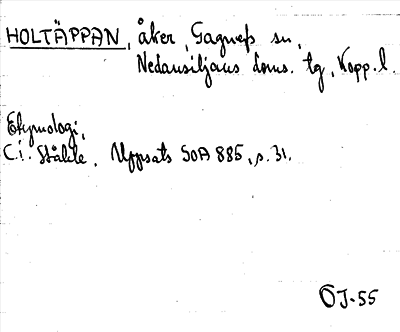 HOLTÄPPAN, åker, Gagnefs sn,
Nedansiljans doms. tg, Kopp. l.
Etymologi,
C.i. Ståhle, Uppsats SOA 885, s. 31.
ÖJ-55